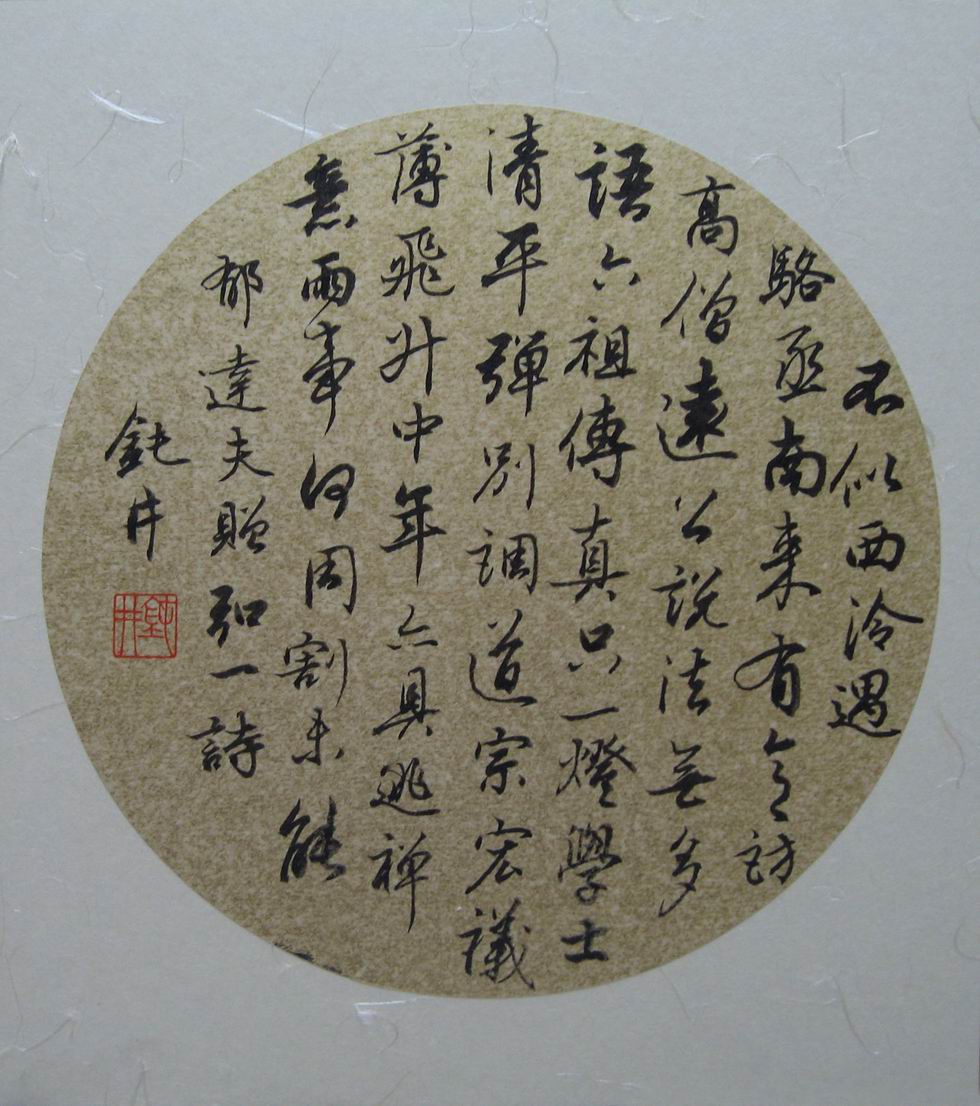 不似西泠遇
駱丞南来有意訪
高僧遠公説法無多
語六祖傳真只一燈學士
清平彈別調道宗宏議
薄飛升中年亦具逃禅
意兩事何周割未能
郁達夫贈弘一詩
鈍井
鈍井